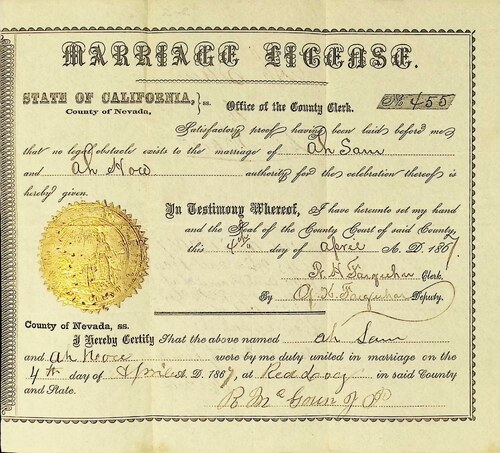 MARRIAGE LICENSE.
STATE OF CALIFORNIA, } ss. Office of the County Clerk. No 455
County of Nevada,
Satisfactory proof having been laid before me
that no legal obstacle exists to the marriage of Ah Sam
and Ah How authority for the celebration thereof is
hereby given.
In Testimony Whereof, I have hereunto set my hand
and the Seal of the County Court of said County,
this 4th day of April A. D. 1867.
R. H. Farquhar Clerk.
By G. K. Farquhar Deputy.
County of Nevada, ss.
I Hereby Certify That the above named Ah Sam
and Ah were by me duly united in marriage on the
4th day of April A. D. 1867, at Red Dog in said County
and State.
R. J P